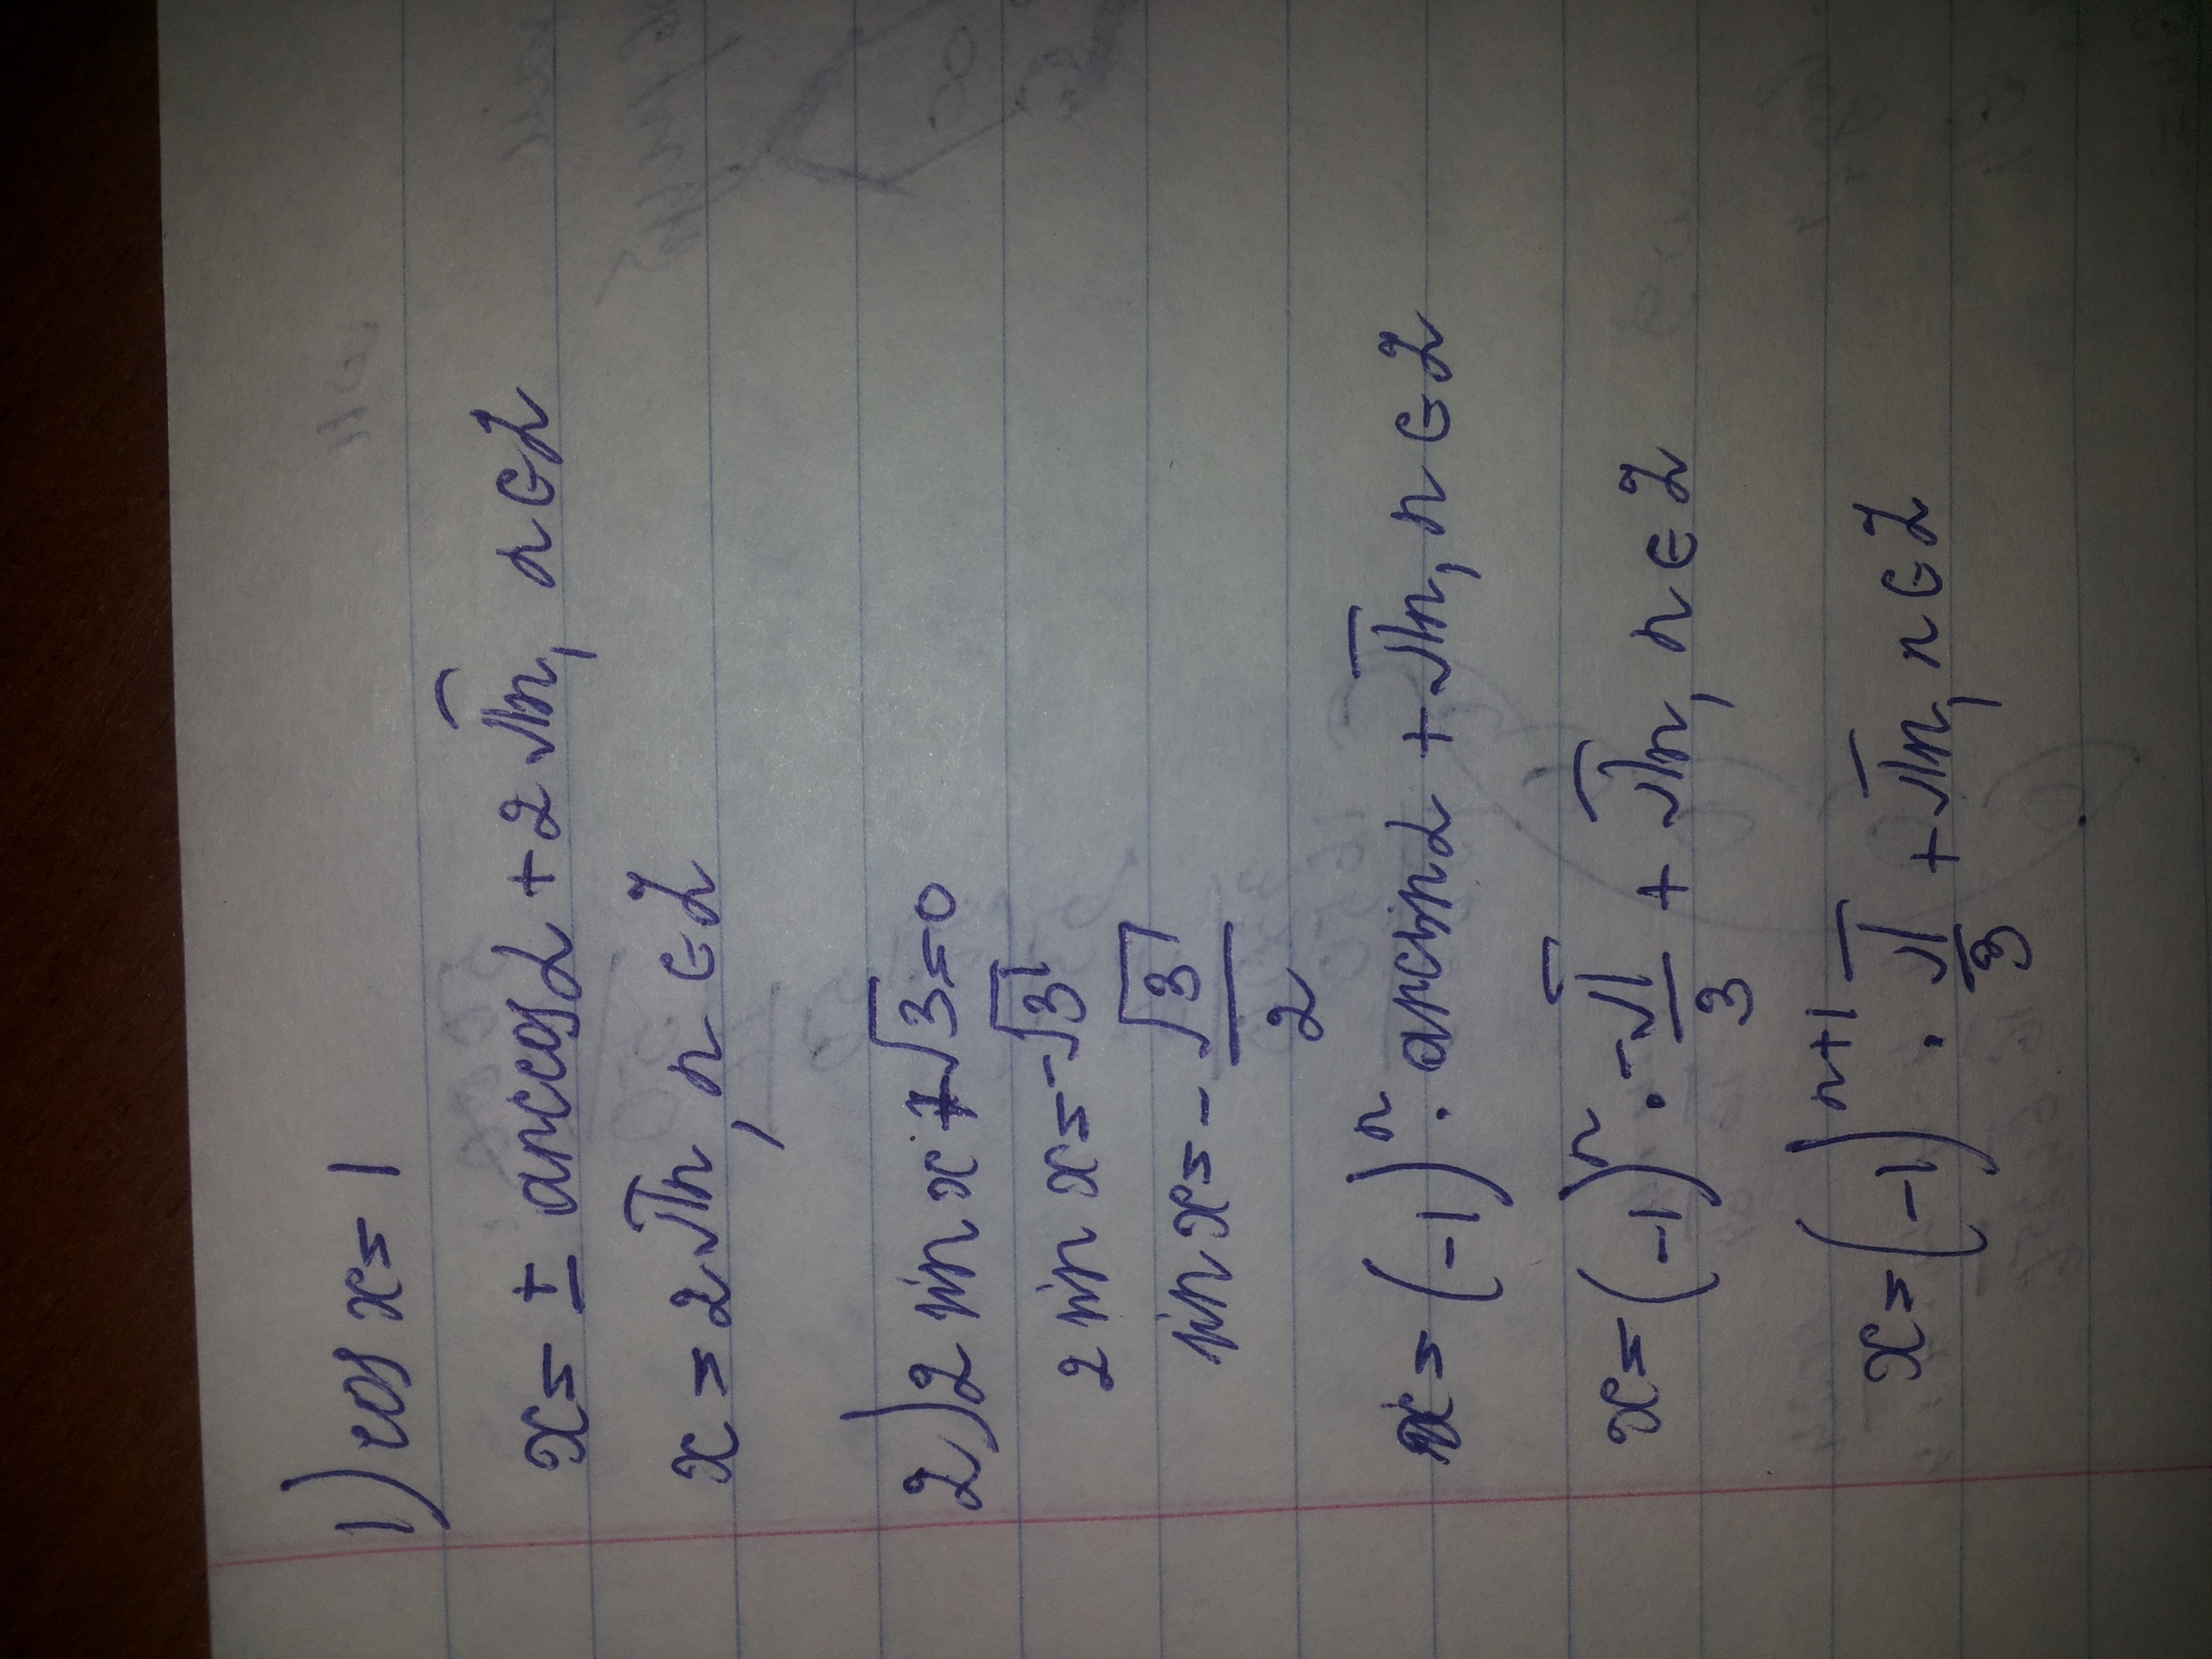 1) cos x = 1
x = ± arccos α + 2πn, n ∈ Z
x = 2πn, n ∈ Z
2) 2 sin x + √3 = 0
2 sin x = -√3
sin x = -√3/2
x = (-1)ⁿ · arcsin α + πn, n ∈ Z
x = (-1)ⁿ · -π/3 + πn, n ∈ Z
x = (-1)ⁿ⁺¹ · π/3 + πn, n ∈ Z